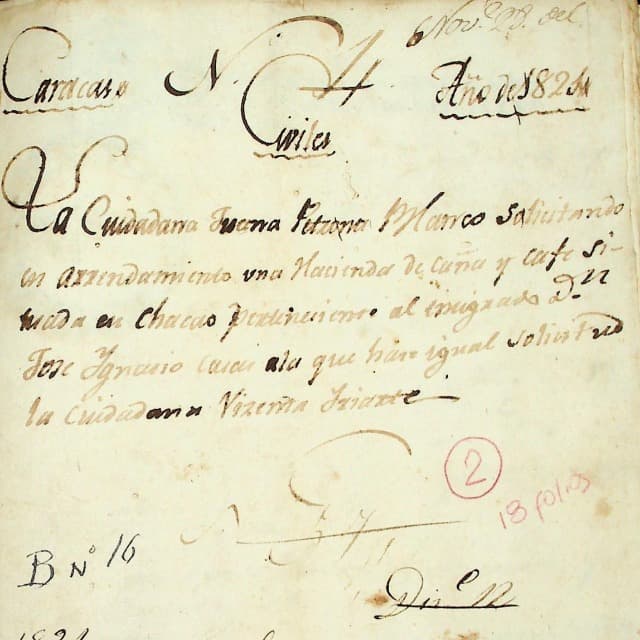 6 Nov.e 29. del
Caracas N. 4 Año de 1824
Civiles
La Cuidadana Juana Petrona Blanco solicitando
en arrendamiento una Hacienda de caña y cafe si-
tuada en Chacao perteneciente al emigrado D.n
Jose Ygnacio Casas ala que hase igual solicitud
la Cuidadana Vizenta Iriarte
2
18 folios
B N° 16
1824